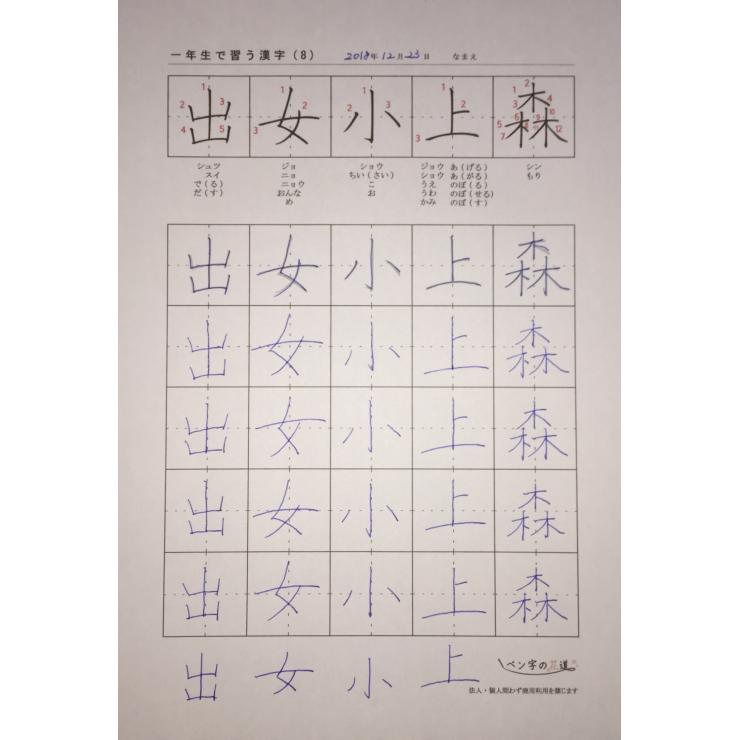 一年生で習う漢字（8） 2018年12月23日 なまえ
1 1 1 1 1 2
2 3 2 2 3 2 3 4
4 5 3 3 5 6 9 10
7 8 11 12
出 女 小 上 森
シュツ ジョ ショウ ジョウ あ（げる） シン
スイ ニョ ちい（さい） ショウ あ（がる） もり
で（る） ニョウ こ うえ のぼ（る）
だ（す） おんな お うわ のぼ（せる）
め かみ のぼ（す）
出 女 小 上 森
出 女 小 上 森
出 女 小 上 森
出 女 小 上 森
出 女 小 上 森
出 女 小 上
ペン字の花道
法人・個人問わず商用利用を禁じます